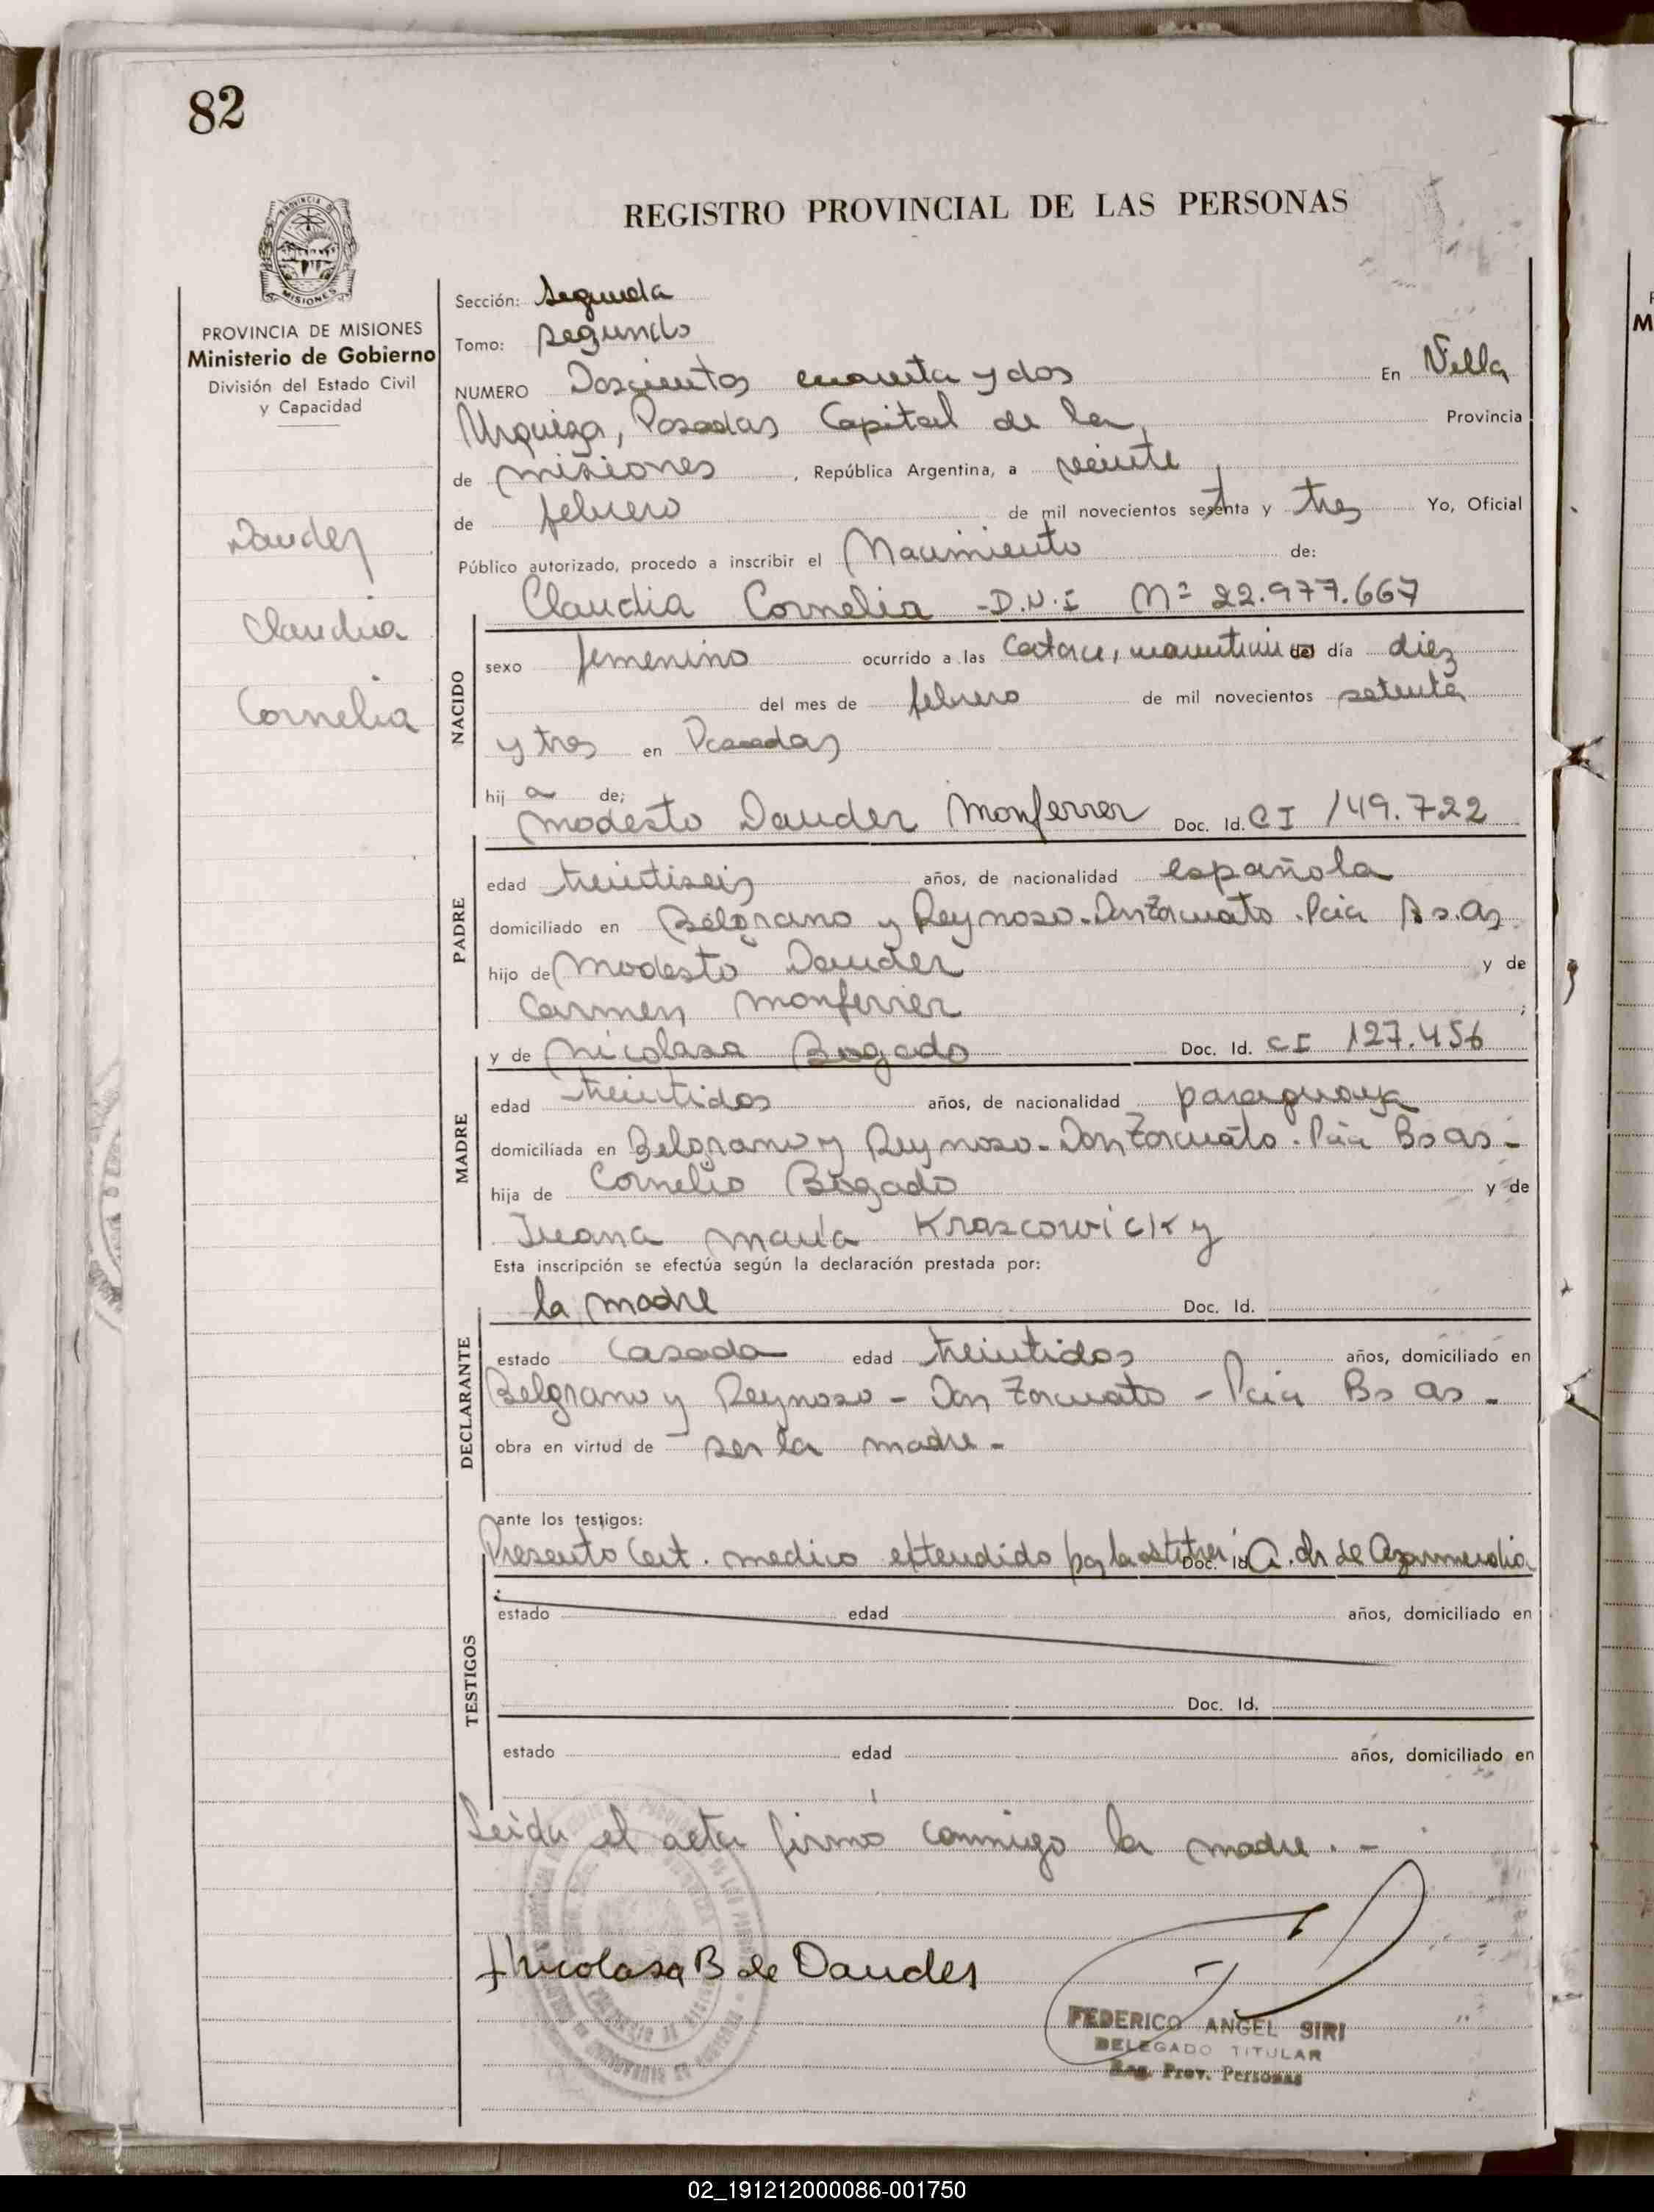 82
REGISTRO PROVINCIAL DE LAS PERSONAS
MISIONES
PROVINCIA DE MISIONES
Ministerio de Gobierno
División del Estado Civil
y Capacidad
Dauder
Claudia
Cornelia
Sección: Segunda
Tomo: Segundo
NUMERO Doscientos cuarenta y dos En Villa
Urquiza, Posadas Capital de la Provincia
de misiones, República Argentina, a veinte
de febrero de mil novecientos setenta y tres Yo, Oficial
Público autorizado, procedo a inscribir el Nacimiento de:
Claudia Cornelia - D.N.I Nº 22.977.667
NACIDO
sexo femenino ocurrido a las del día diez
del mes de febrero de mil novecientos setenta
y tres en Posadas
hija de;
modesto Dauder Monferrer Doc. Id. CI 149.722
PADRE
edad treintiseis años, de nacionalidad española
domiciliado en Belgrano y Reynoso - Don Zorcuato . Pcia Bs. As.
hijo de Modesto Dauder y de
Carmen Monferrer ;
y de Nicolasa Bogado Doc. Id. CI 127.456
MADRE
edad treintidos años, de nacionalidad paraguaya
domiciliada en Belgrano y Reynoso - Don Zorcuato . Pcia Bs as -
hija de Cornelio Bogado y de
Juana maría Krascowicky
Esta inscripción se efectúa según la declaración prestada por:
la madre Doc. Id.
DECLARANTE
estado Casada edad treintidos años, domiciliado en
Belgrano y Reynoso - Don Zorcuato - Pcia Bs as -
obra en virtud de ser la madre -
ante los testigos:
Presento Cert. medico extendido por la Doc. Id. A. de Azarmendia
TESTIGOS
estado edad años, domiciliado en
Doc. Id.
estado edad años, domiciliado en
Leída el acta firmó conmigo la madre . -
Nicolasa B de Dauder
FEDERICO ANGEL SIRI
DELEGADO TITULAR
Reg. Prov. Personas
02_191212000086-001750